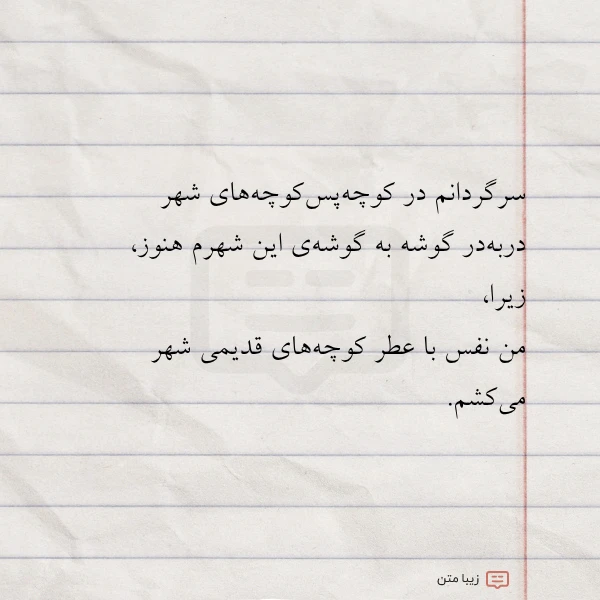 سرگردانم در کوچه‌پس‌کوچه‌های شهر
دربه‌در گوشه به گوشه‌ی این شهرم هنوز،
زیرا،
من نفس با عطر کوچه‌های قدیمی شهر
می‌کشم.
زیبا متن